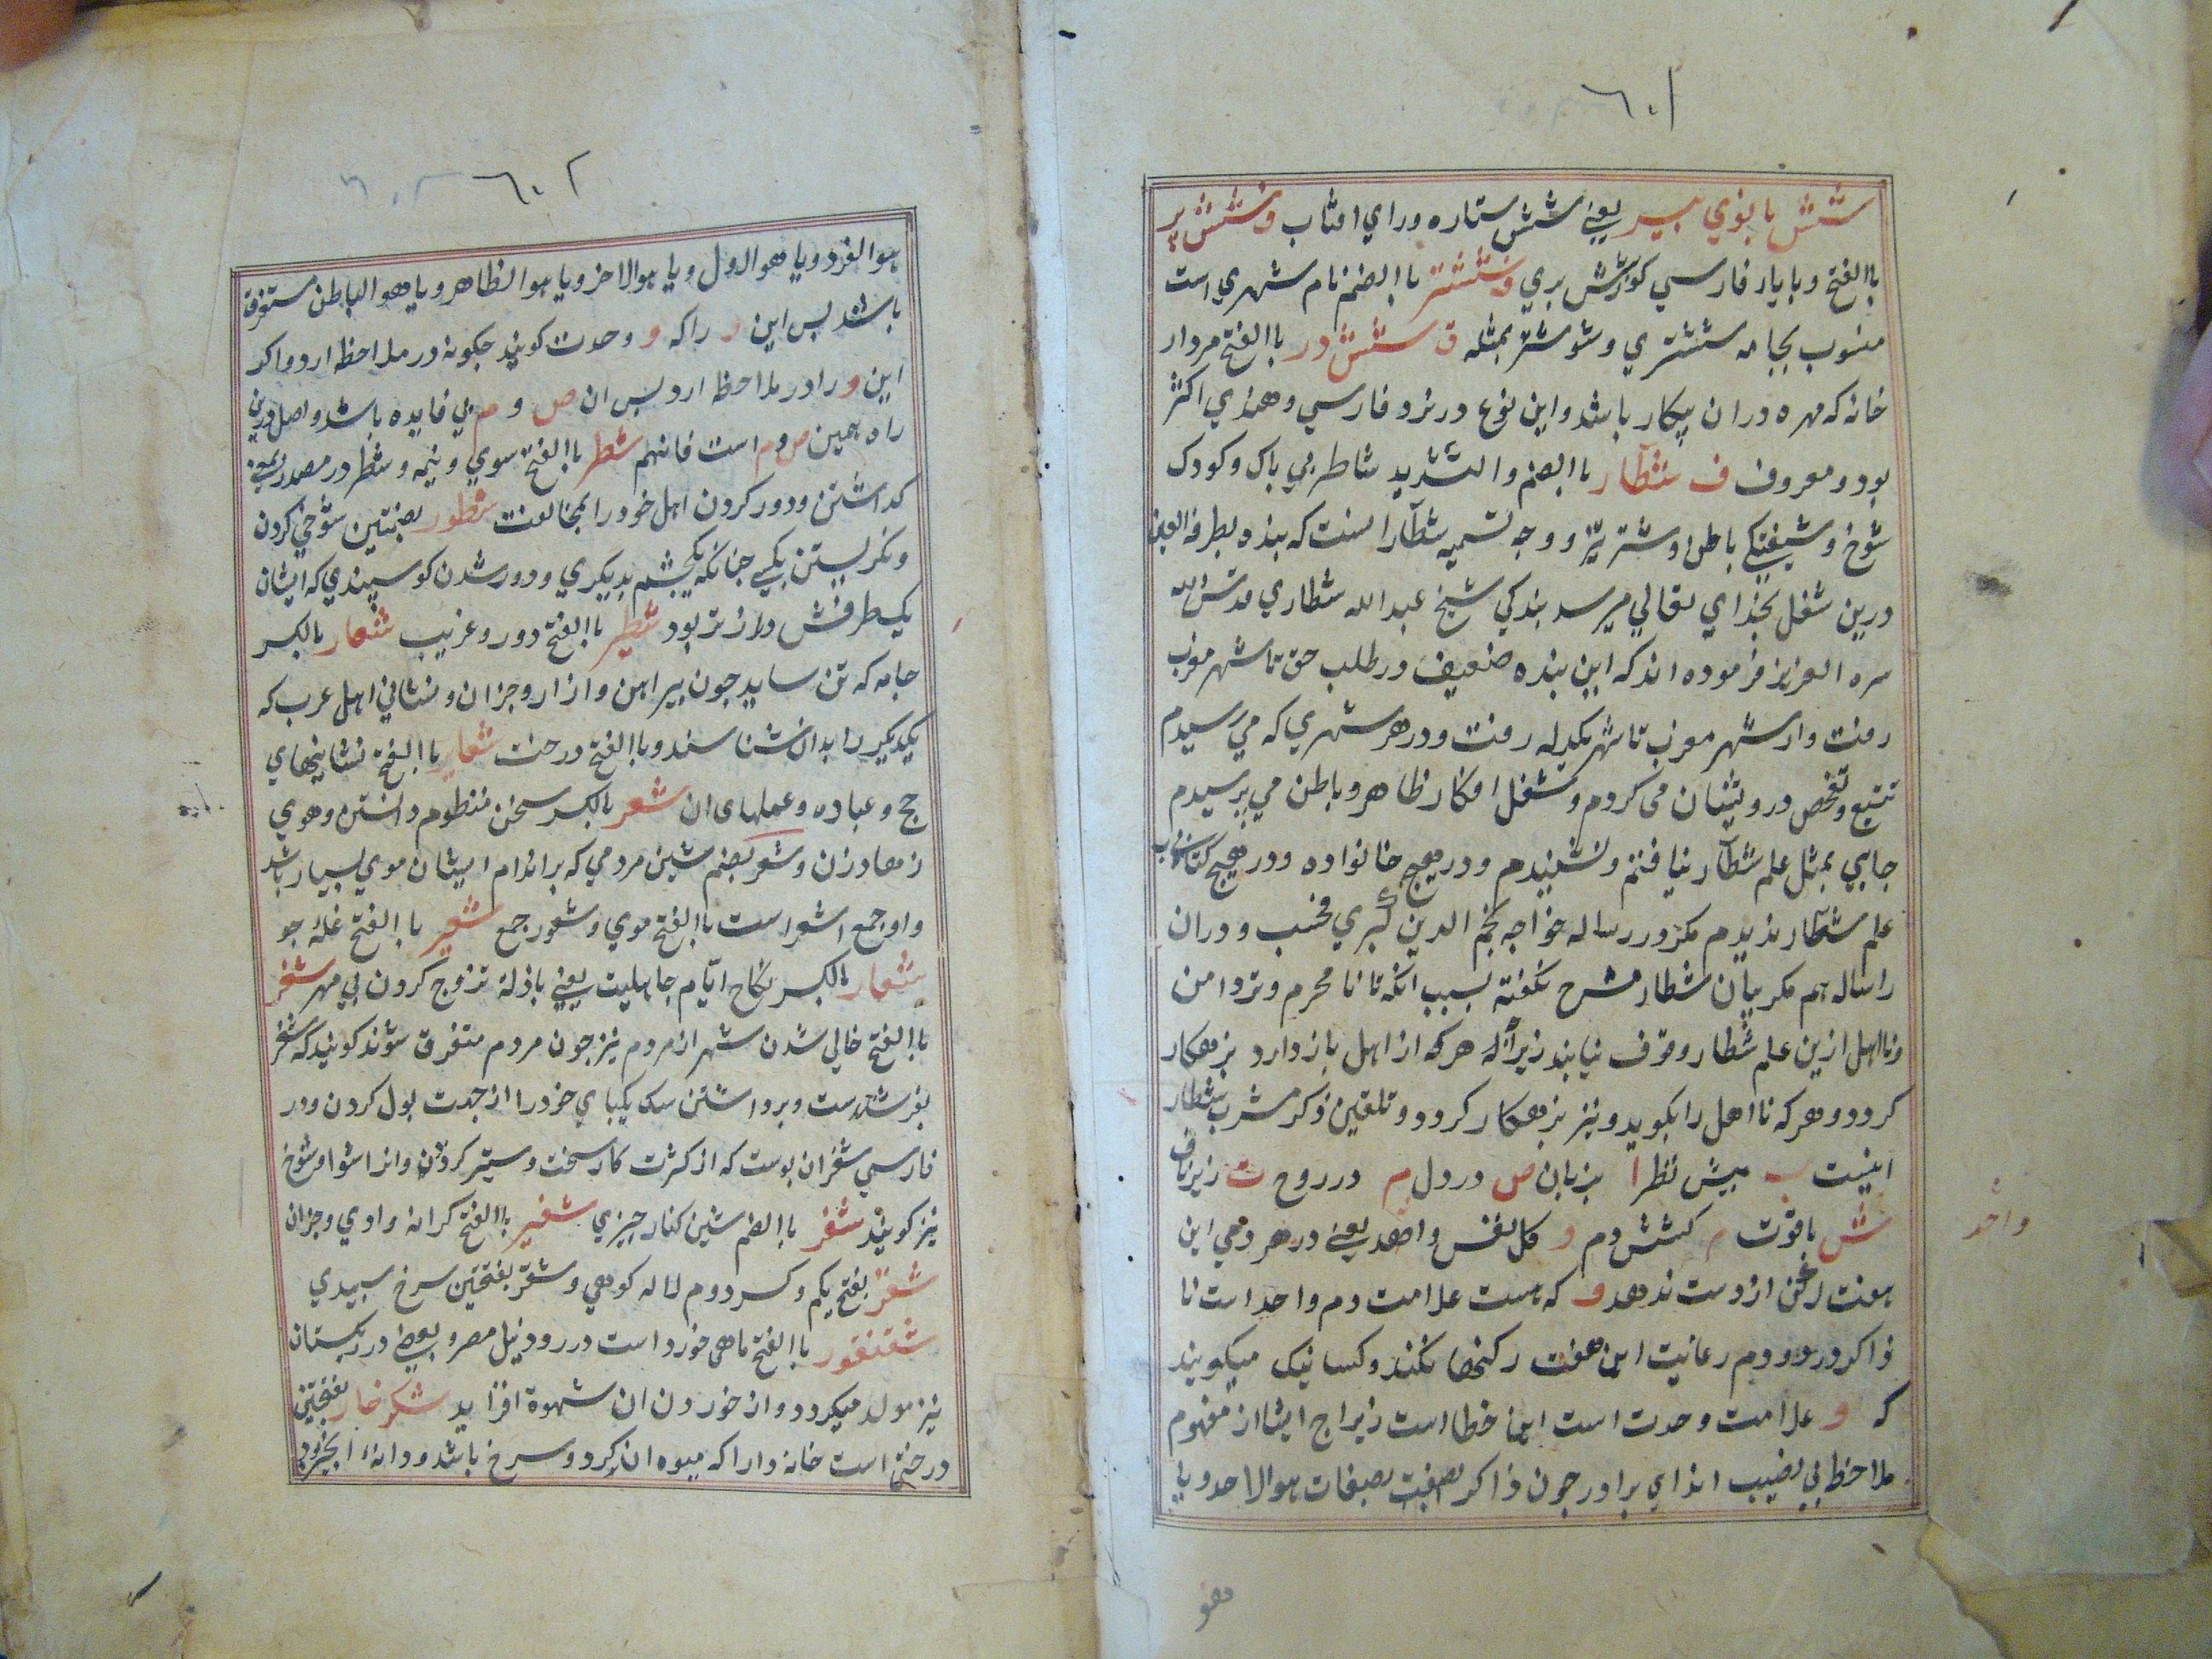 ٦٠١
شش بانوي پير يعني شش ستاره وراي افتاب و شش پر
باالفتح وبا ياء فارسي كوازش بري و ششتر باالضم نام شهري است
منسوب بجامه ششتري و شوشتر بمثله ق شش در باالفتح مردار
خانه كه مهره دران بيكار باشد و اين نوع در نرد فارسي و هندي اكثر
بود و معروف ف شطار باالضم والتشديد شاطر بي باك و كودك
شوخ و شيفتكي باطن او شتر تيز و وجه تسميه شطار انست كه بنده بطرفة العين
درين شغل بخداي تعالي ميرسد بندكي شيخ عبدالله شطاري قدس الله
سره العزيز فرموده اند كه اين بنده ضعيف در طلب حق تا شهر مغرب
رفت و از شهر مغرب تا شهر رفت و در هر شهري كه مي رسيدم
تتبع و تفحص درويشان مى كردم و شغل افكار ظاهر و باطن مي پرسيدم
جايي بمثل علم شطار نيافتم و نشنيدم و در هيج خانواده و در هيج كتاب
علم شطار نديدم مكر در رساله خواجه نجم الدين كبري و دران
راساله هم مكر بيان شطار مشرح نكفته بسبب انكه تا نا محرم و تردامن
و نااهل ازين علم شطار وقوف نيابند زيرا كه هركه از اهل باز دارد بزهكار
كردد و هركه نااهل را بكويد و نيز بزهكار كردد و تلقين ذكر مشرب شطار
اينست ب پيش نظر ا بزبان ص در دل م در روح ت زيرناف
ش باقوت م كشش دم و كل نفس واحد يعني در هر دمي اين
واحد
هفت ركن از دست ندهد و كه هست علامت دم واحد است تا
ذاكر در دم رعايت اين هفت ركنها نكند و كسانيك ميكويند
كه و علامت وحدت است اين خطا است زيراج ايشان از مفهوم
ملاحظ بي نصيب اند اي برادر جون ذاكر بصفت بصفات هوالاحد و يا
هو
٦٠٢ ٦٠٢
هوالفرد و يا هوالاول و يا هوالاخر و يا هوالظاهر و يا هوالباطن مستغرق
باشد پس اين و را كه و وحدت كويند جكونه در ملاحظ ارد و اكر
اين و را در ملاحظ ارد پس ان ص و م بي فايده باشد و اصل درين
راه همين ص و م است فافهم شطر باالفتح سوي و نيمه و شطر در مصدر بمعني
كذاشتن و دور كردن اهل خود را بمخالفت شطور بضمتين شوخي كردن
و نكريستن بكسي جنانكه بجشم بديكري و دور شدن كوسپندي كه ايشان
يكطرفش درازتر بود شطير باالفتح دور و غريب شعار بالكسر
جامه كه تن سايد جون پيراهن و ازار و جزان و نشاني اهل عرب كه
يكديكير را بدان شناسند و باالفتح درخت شعاير باالفتح نشانيهاي
حج و عباده و عملهاى ان شعر بالكسر سخن منظوم دانستن و هوي
زهار زن و شعر بضم شين مردمي كه براندام ايشان موي بسيار باشد
و او جمع اشعر است باالفتح موي و شعور جمع شعير باالفتح غله جو
شغار بالكسر نكاح ايام جاهليت يعني زن تزوج كردن بي مهر شغر
باالفتح خالي شدن شهر از مردم نيز جون مردم متفرق شوند كويند كه شغر
بغر شدست و برداشتن سك يكپاي خود را از جهت بول كردن و در
فارسي شغر ان پوست كه از كثرت كار سخت و ستبر كردد و انرا شوا و شوخ
نيز كويند شفر باالضم شين كنار جيزي شفير باالفتح كرانه وادي و جزان
شقر بفتح يكم و كسر دوم لاله كوهي و شقر بفتحتين سرخ سپيدي
شقنقور باالفتح ماهى خورد است در رود نيل مصر و بعضي در ريكستان
نيز مولد ميكردد و از خوردن ان شهوة افزايد شكرخار بفتحتين
درختي است خانه دارا كه ميوه ان كرد و سرخ باشد و دانه